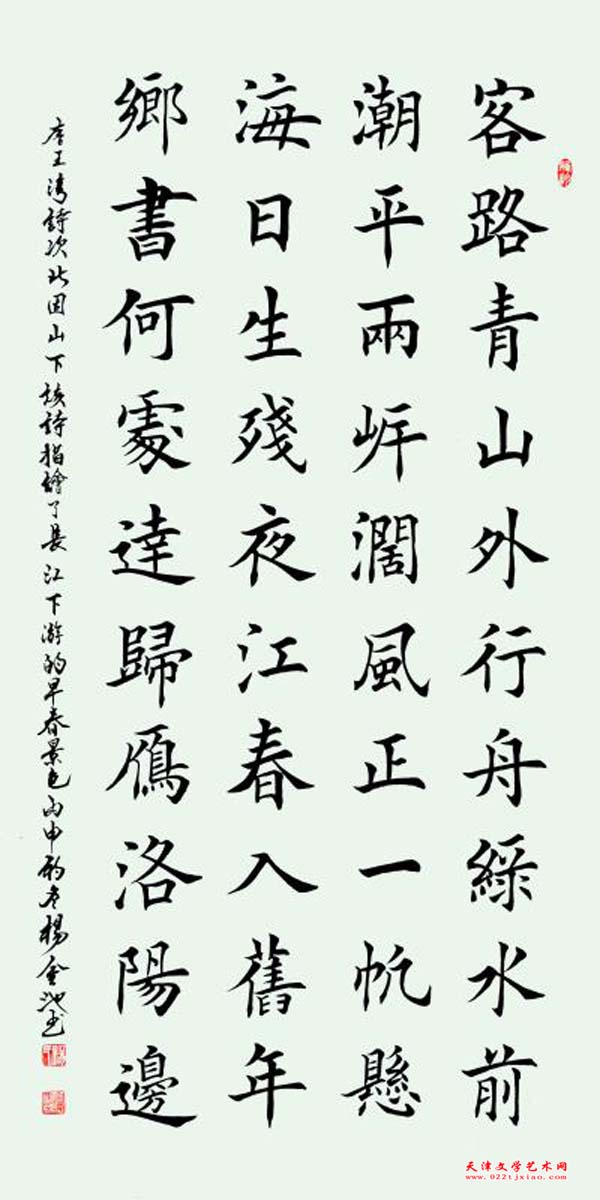 客路青山外行舟綠水前
潮平兩岸濶風正一帆懸
海日生殘夜江春入舊年
鄉書何處達歸鴈洛陽邊
唐王湾詩次北固山下該詩描繪了長江下游的早春景色丙申初冬楊金池书
天津文学艺术网
www.022tjxiao.com